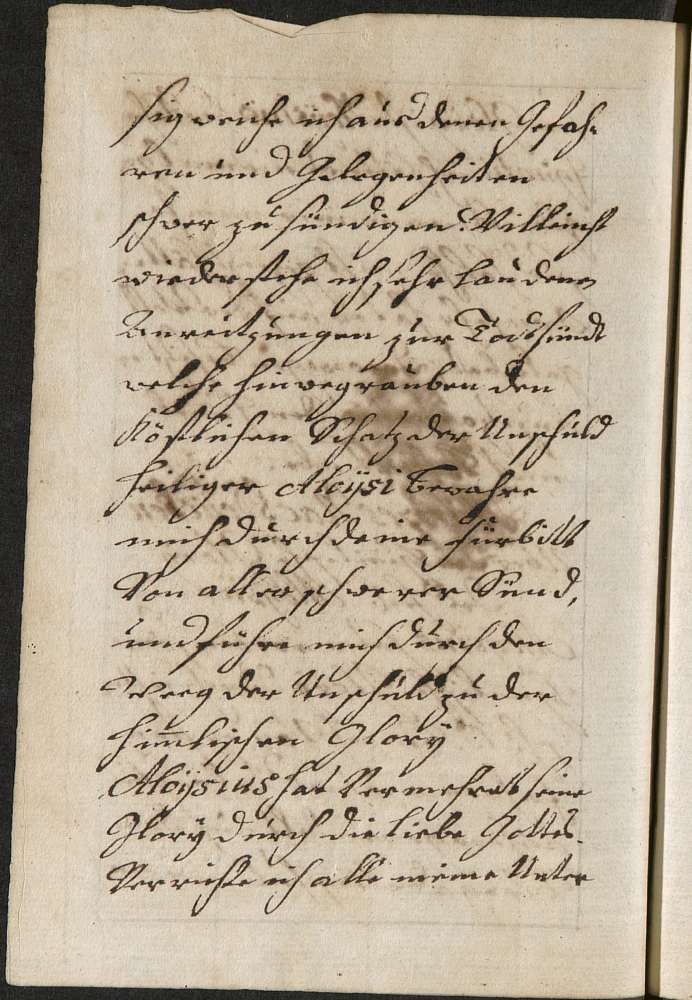 sig weiche ich aus denen Gefah-
ren und Gelegenheiten
schwer zu sündigen. Villeicht
wiederstehe ich sehr lau denen
Anreitzungen zur Todtsündt
welche hinwegrauben den
Köstlichen Schatz der Unschuld
heiliger Aloÿsi bewahre
mich durch deine fürbitt
Von aller schwerer Sünd,
und führe mich durch den
Weeg der Unschuld zu der
him̄lischen Glory
Aloÿsius hat Vermehret seine
Glory durch die liebe Gottes.
Verrichte ich alle meine Unter